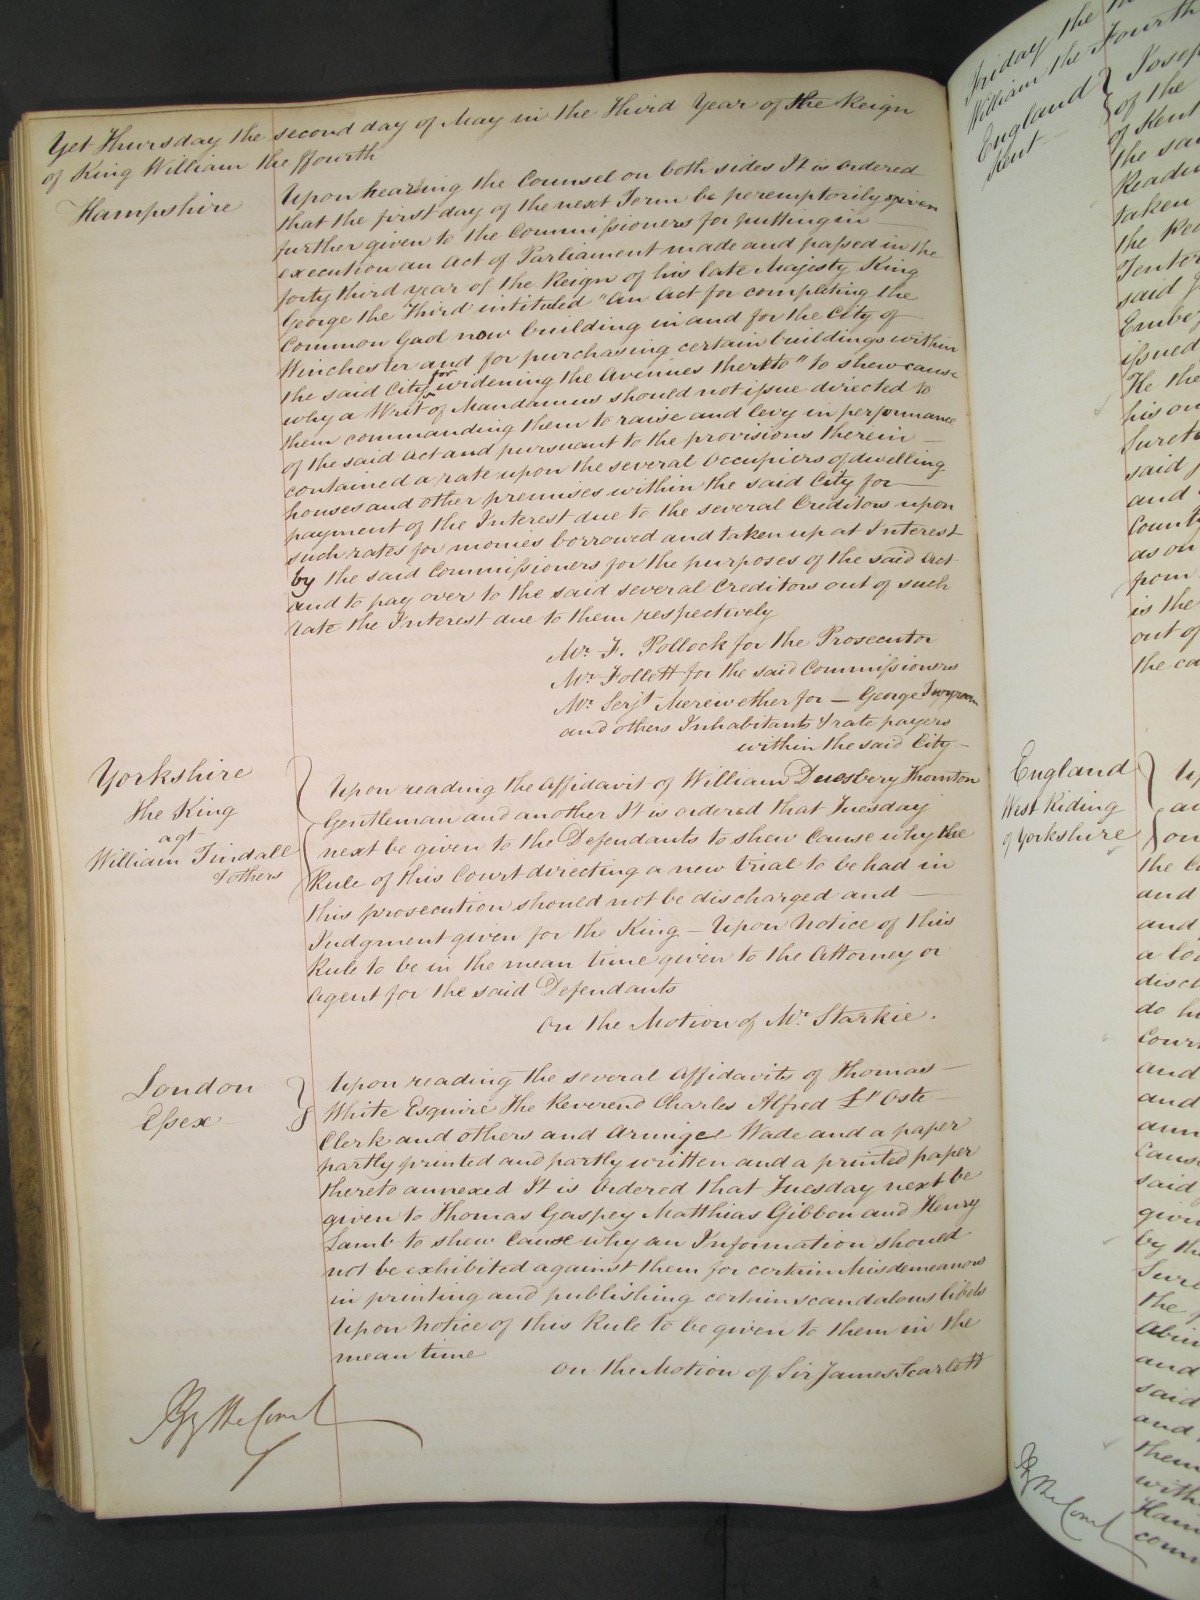 Yet Thursday the second day of May in the Third Year of the Reign
of King William the ffourth
Hampshire
Upon hearing the Counsel on both sides It is ordered
that the first day of the next Term be peremptorily given
further given to the Commissioners for putting in
execution an Act of Parliament made and passed in the
forty third year of the Reign of his late Majesty King
George the Third intituled "An Act for completing the
Common Gaol now building in and for the City of
Winchester and for purchasing certain buildings within
the said City for widening the Avenues thereto" to shew cause
why a Writ of Mandamus should not issue directed to
them commanding them to raise and levy in performance
of the said Act and pursuant to the provisions therein
contained a rate upon the several Occupiers of dwelling
houses and other premises within the said City for
payment of the Interest due to the several Creditors upon
such rates for monies borrowed and taken up at Interest
by the said Commissioners for the purposes of the said Act
and to pay over to the said several Creditors out of such
rate the Interest due to them respectively
Mr. F. Pollock for the Prosecutor
Mr. Follett for the said Commissioners
Mr. Serjt. Merewether for — George
and others Inhabitants & rate payers
within the said City —
Yorkshire
The King
agt
William Tindale
& others
Upon reading the Affidavit of William Duesbery Thornton
Gentleman and another It is ordered that Tuesday
next be given to the Defendants to shew Cause why the
Rule of this Court directing a new trial to be had in
this prosecution should not be discharged and —
Judgment given for the King — Upon Notice of this
Rule to be in the mean time given to the Attorney or
Agent for the said Defendants
On the Motion of Mr. Starkie.
London
Essex
Upon reading the several Affidavits of Thomas —
White Esquire The Reverend Charles Alfred L'Oste —
Clerk and others and Armigel Wade and a paper
partly printed and partly written and a printed paper
thereto annexed It is Ordered that Tuesday next be
given to Thomas Gaspey Matthias Gibbon and Henry
Lamb to shew Cause why an Information should
not be exhibited against them for certain Misdemeanors
in printing and publishing certain scandalous libels
Upon Notice of this Rule to be given to them in the
mean time
On the Motion of Sir James Scarlett
By the Court
Friday the
William the Fourth
England
Kent
of the
of Kent
the said
taken
the
said
issued
his own
said
and
County
as on
is the
out of
the
England
West Riding
of Yorkshire
the
and
and
do
Court
and
and
Cause
said
given
by the
the
and
said
and
them
with
By the Court